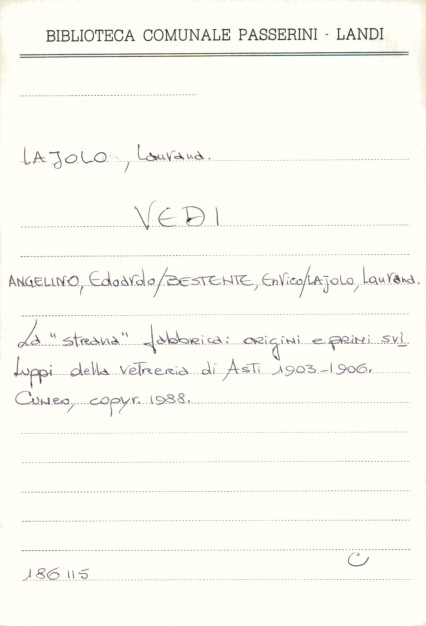 BIBLIOTECA COMUNALE PASSERINI - LANDI
LAJOLO, Laurana.
VEDI
ANGELINO, Edoardo/BESTENTE, Enrico/LAJOLO, Laurana.
La "strana" fabbrica: origini e primi svi
luppi della vetreria di Asti 1903-1906.
Cuneo, copyr. 1988.
C
186115